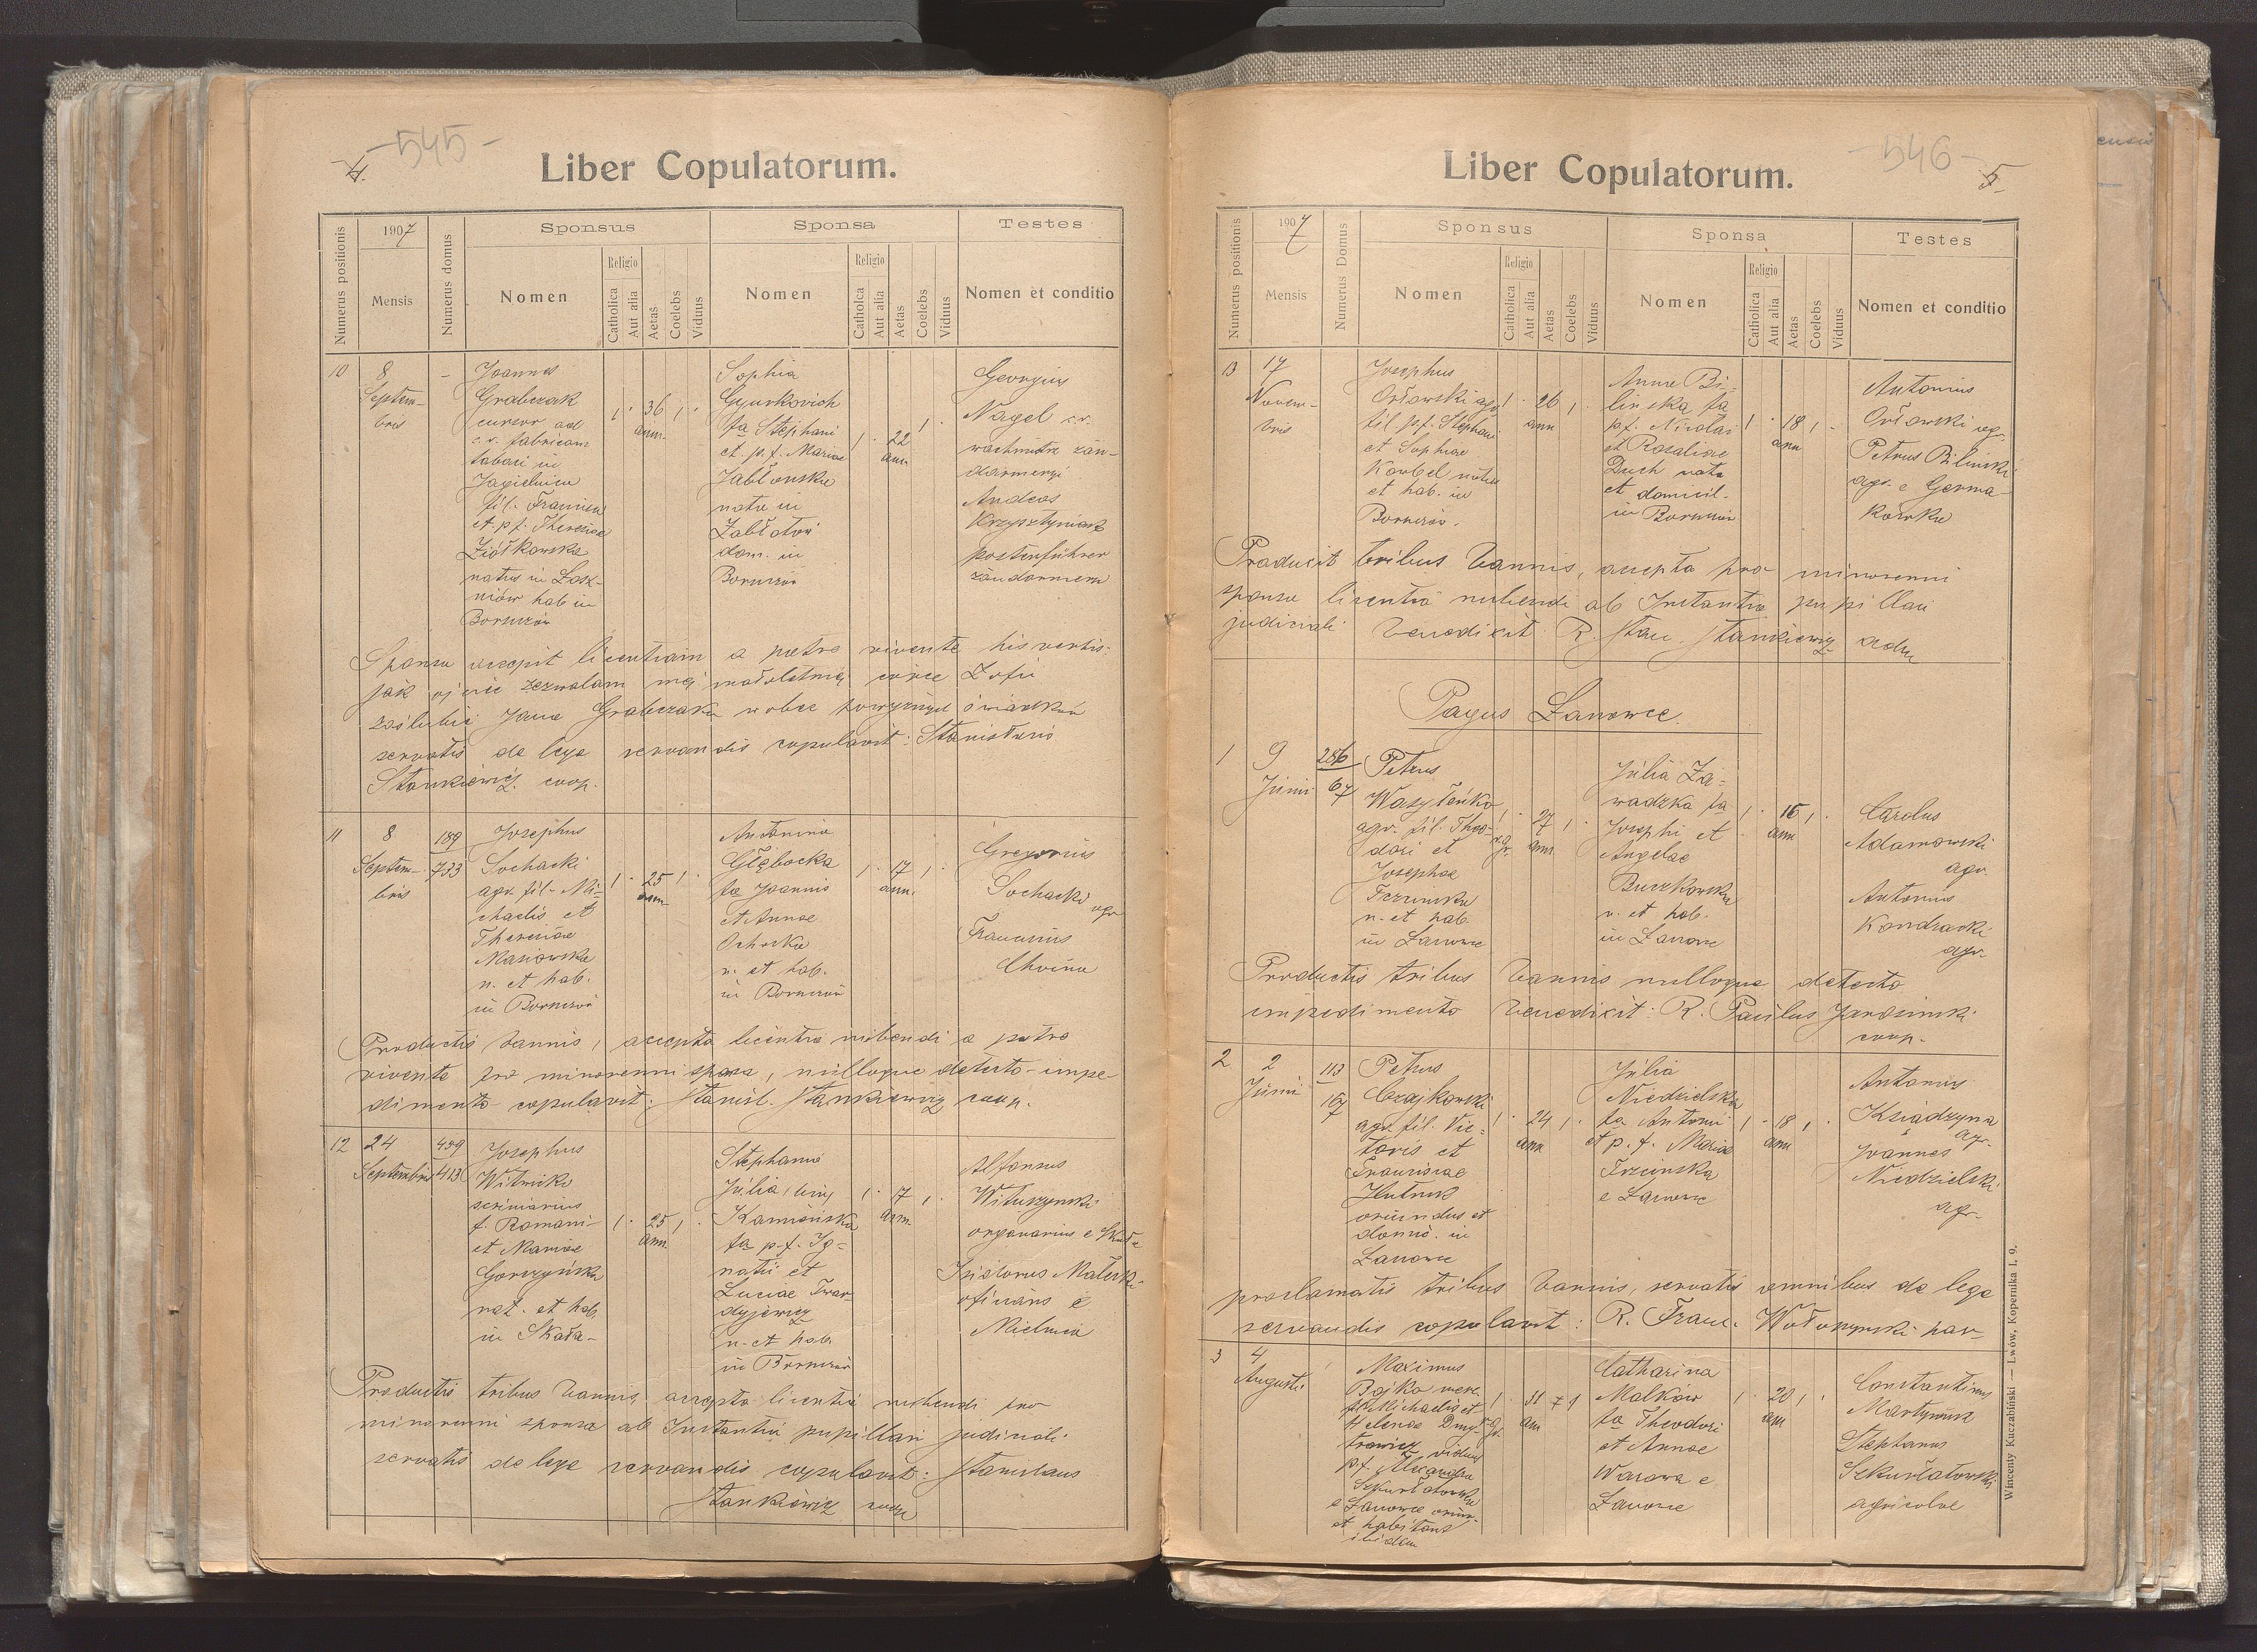 4.
-545-
Liber Copulatorum.
Numerus positionis
1907
Mensis
Numerus domus
Sponsus
Nomen
Religio
Catholica
Aut alia
Aetas
Coelebs
Viduus
Sponsa
Nomen
Religio
Catholca
Aut alia
Aetas
Coelebs
Viduus
Testes
Nomen et conditio
10
8
Septem-
bris
-
Joannes
Grabczak
cursor ad
c.r. fabricam
tabaci in
Jagielnica
fil. Francisci
et p.f. Theresiae
Ziółkowska
natus in Łosz-
niów hab in
Borszczów
1 · 36 1 ·
ann.
Sophia
Gyurkovich
fa Stephani
et p.f. Mariae
Jabłonska
nata in
Zabłotów
dom. in
Borszczów
1 · 22 1
ann.
Georgius
Nagel c.r.
wachmistr żan-
darmeryi
Andreas
Krzysztyniak
postenführer
żandarmeryi
Sponsa accepit licentiam a patre vivente his verbis:
jak ojciec zezwalam mej małoletniej córce Zofii
zaślubić Jana Grabczaka wobec powyższych świadków
servatis de lege servandis copulavit: Stanislaus
Stankiewicz coop.
11
8
Septem-
bris
189
733
Josephus
Sochacki
agr. fil. Mi-
chaelis et
Theresiae
Masiowska
n. et hab.
in Borszczów
1 · 25 1 ·
ann.
Antonina
Głębocka
fa Joannis
et Annae
Ochocka
n. et hab.
in Borszczów
1 · 17 1 ·
ann.
Gregorius
Sochacki
agr
Franciscus
Choina
Productis bannis, accepta licentia nubendi a patre
vivente pro minorenni sponsa, nulloque detecto impe-
dimento copulavit: Stanisl. Stankiewicz coop.
12
24
Septembris
459
413
Josephus
Witwicki
scriniarius
f. Romani
et Mariae
Gorczyńska
nat. et hab.
in Skała-
1 · 25 1 ·
ann.
Stephania
Julia, bin.
Kamieńska
fa p.f. Ig-
natii et
Luciae Twar-
dyjewicz
n. et hab.
in Borszczów
1 · 17 1 ·
ann.
Alfonsus
Wituszynski
organarius e Skała
Isidorus Materski
officians e
Mielnica
Productis tribus bannis, accepta licentia nubendi pro
minorenni sponsa ab Instantia pupillari judiciali
servatis de lege servandis copulavit: Stanislaus
Stankiewicz coop
-546-
5.
Liber Copulatorum.
Numerus positionis
1907
Mensis
Numerus Domus
Sponsus
Nomen
Religio
Catholica
Aut alia
Aetas
Coelebs
Viduus
Sponsa
Nomen
Religio
Catholica
Aut alia
Aetas
Coelebs
Viduus
Testes
Nomen et conditio
13
17
Novem-
bris
Josephus
Orłowski agr
fil p.f. Stephani
et Sophiae
Korbel natus
et hab. in
Borszczów.
1 · 26 1 ·
ann
Anna Bi-
linska fa
p.f. Nicolai
et Rosaliae
Duch nata
et domicil.
in Borszczów
1 · 18 1 -
ann
Antonius
Orłowski agr.
Petrus Bilinski
agr. e Germa-
kówka
Producit tribus bannis, accepta pro minorenni
sponsa licentia nubendi ab Instantia pupillari
judiciali benedixit R. Stan. Stankiewicz adm
Pagus Łanowce.
1
9
Junii
286
67
Petrus
Wasyłenko
agr. fil. Theo-
dori et
Josephae
Trzcinska
n. et hab.
in Łanowce
1 · 27 1
r.gr. ann.
Julia Za-
wadzka fa
Josephi et
Angelae
Buczkowska
n. et hab.
in Łanowce
1 · 16 1 ·
ann
Carolus
Adamowski
agr.
Antonius
Kondracki
agr.
Productis tribus bannis nulloque detecto
impedimento benedixit: R. Paulus Jarosinski
coop.
2
2
Junii
113
167
Petrus
Czajkowski
agr. fil. Vic-
toris et
Franciscae
Hutnik
oriundus et
domic. in
Łanowce
1 · 24 1 ·
ann
Julia
Niedzielska
fa Antonii
et p.f. Mariae
Trzcinska
e Łanowce
1 - 18 1 ·
ann
Antonius
Ksiadzyna
agr.
Joannes
Niedzielski
agr.
proclamatis tribus bannis, servatis omnibus de lege
servandis copulavit: R. Franc. Wołoszynski par-
3
4
Augusti
Maximus
Bojko
f. Michaelis et
Helenae Dmy-
trowicz viduus
p.f. Alexandra
Szkurłatowska
e Łanowce oriun.
et habitans
ibidem
1 r.gr. 31 + 1
ann
Catharina
Malkow
fa Theodori
et Annae
Warowa e
Łanowce
1 · 20 1 ·
ann
Constantinus
Martyniuk
Stephanus
Szkurłatowski
agricolae
Wincenty Kuczabiński — Lwów, Kopernika l. 9.